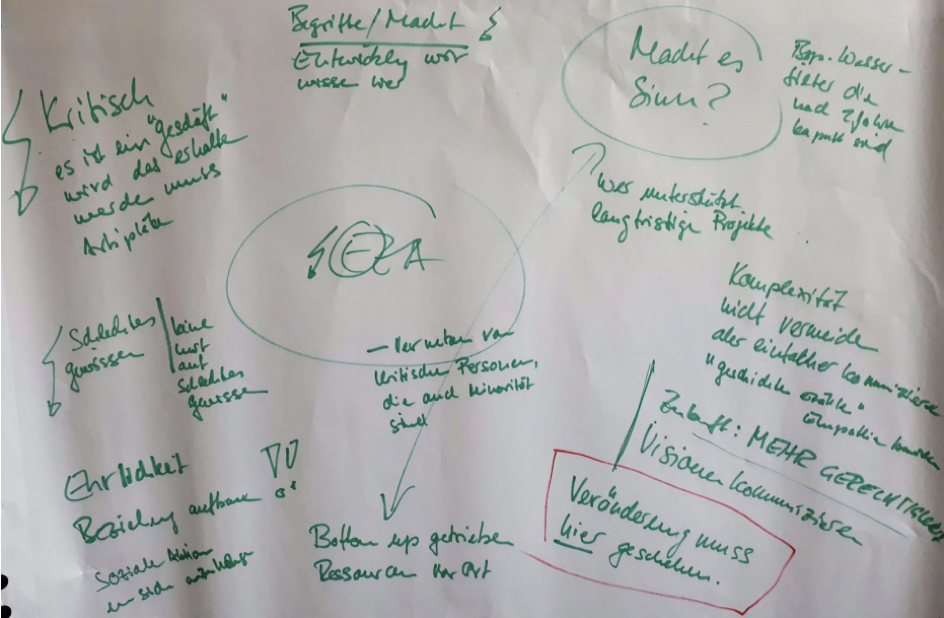 Begriffe / Macht
Entwicklung wor
wisse wer
Macht es
Sinn?
Bsp. Wasser-
filter die
nach 2 Jahren
kaputt sind
Kritisch
es ist ein "geschäft"
wird das erhalte
werde muss
Arbiplätze
wer unterstützt
langfristige Projekte
EZA
Komplexität
nicht vermeide
aber einfacher kommunizieren
"geschichte erzähle"
Empathie
Schlechtes
gewissen
keine
lust
auf
schlechtes
gewissen
– Vernetzen von
kritischen Personen,
die auch Minorität
sind
Zukunft: MEHR GERECHTIGKEIT
Visionen kommunizieren
Ehrlichkeit
Beziehung aufbauen
Soziale
Bottom up getrieben
Ressourcen vor Ort
Veränderung muss
hier geschehen.